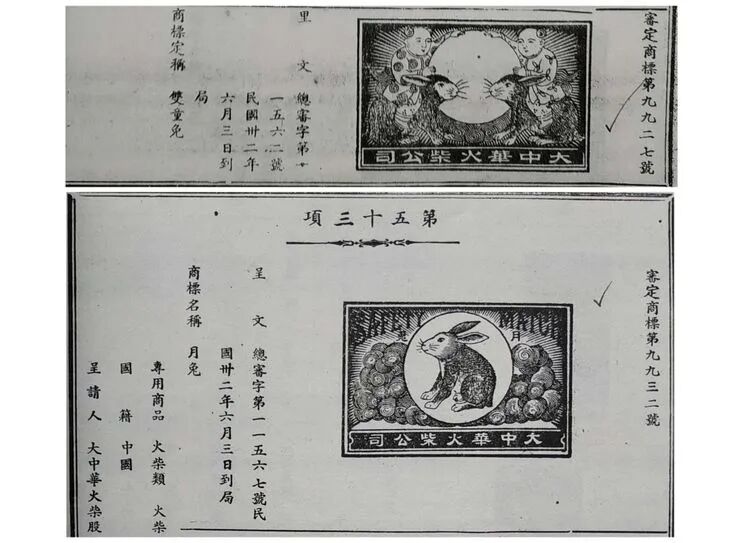 審定商標第九九二七號
大中華火柴公司
呈文 總審字第一
一五六二號
民國卅二年
六月三日到
局
商標名稱 雙童兔
第五十三項
審定商標第九九三二號
月兔
大中華火柴公司
呈文 總審字第一一五六七號民
國卅二年六月三日到局
商標名稱 月兔
專用商品 火柴類 火柴
國籍 中國
呈請人 大中華火柴股